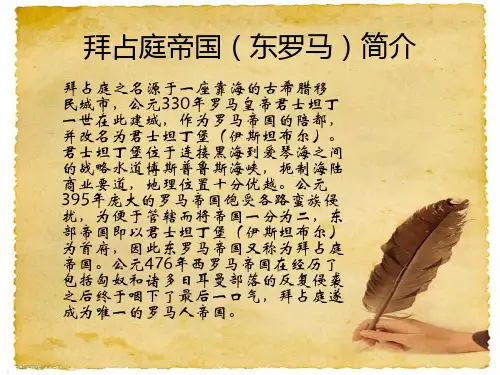 拜占庭帝国（东罗马）简介
拜占庭之名源于一座靠海的古希腊移
民城市，公元330年罗马皇帝君士坦丁
一世在此建城，作为罗马帝国的陪都，
并改名为君士坦丁堡（伊斯坦布尔）。
君士坦丁堡位于连接黑海到爱琴海之间
的战略水道博斯普鲁斯海峡，扼制海陆
商业要道，地理位置十分优越。公元
395年庞大的罗马帝国饱受各路蛮族侵
扰，为便于管辖而将帝国一分为二，东
部帝国即以君士坦丁堡（伊斯坦布尔）
为首府，因此东罗马帝国又称为拜占庭
帝国。公元476年西罗马帝国在经历了
包括匈奴和诸多日耳曼部落的反复侵袭
之后终于咽下了最后一口气，拜占庭遂
成为唯一的罗马人帝国。